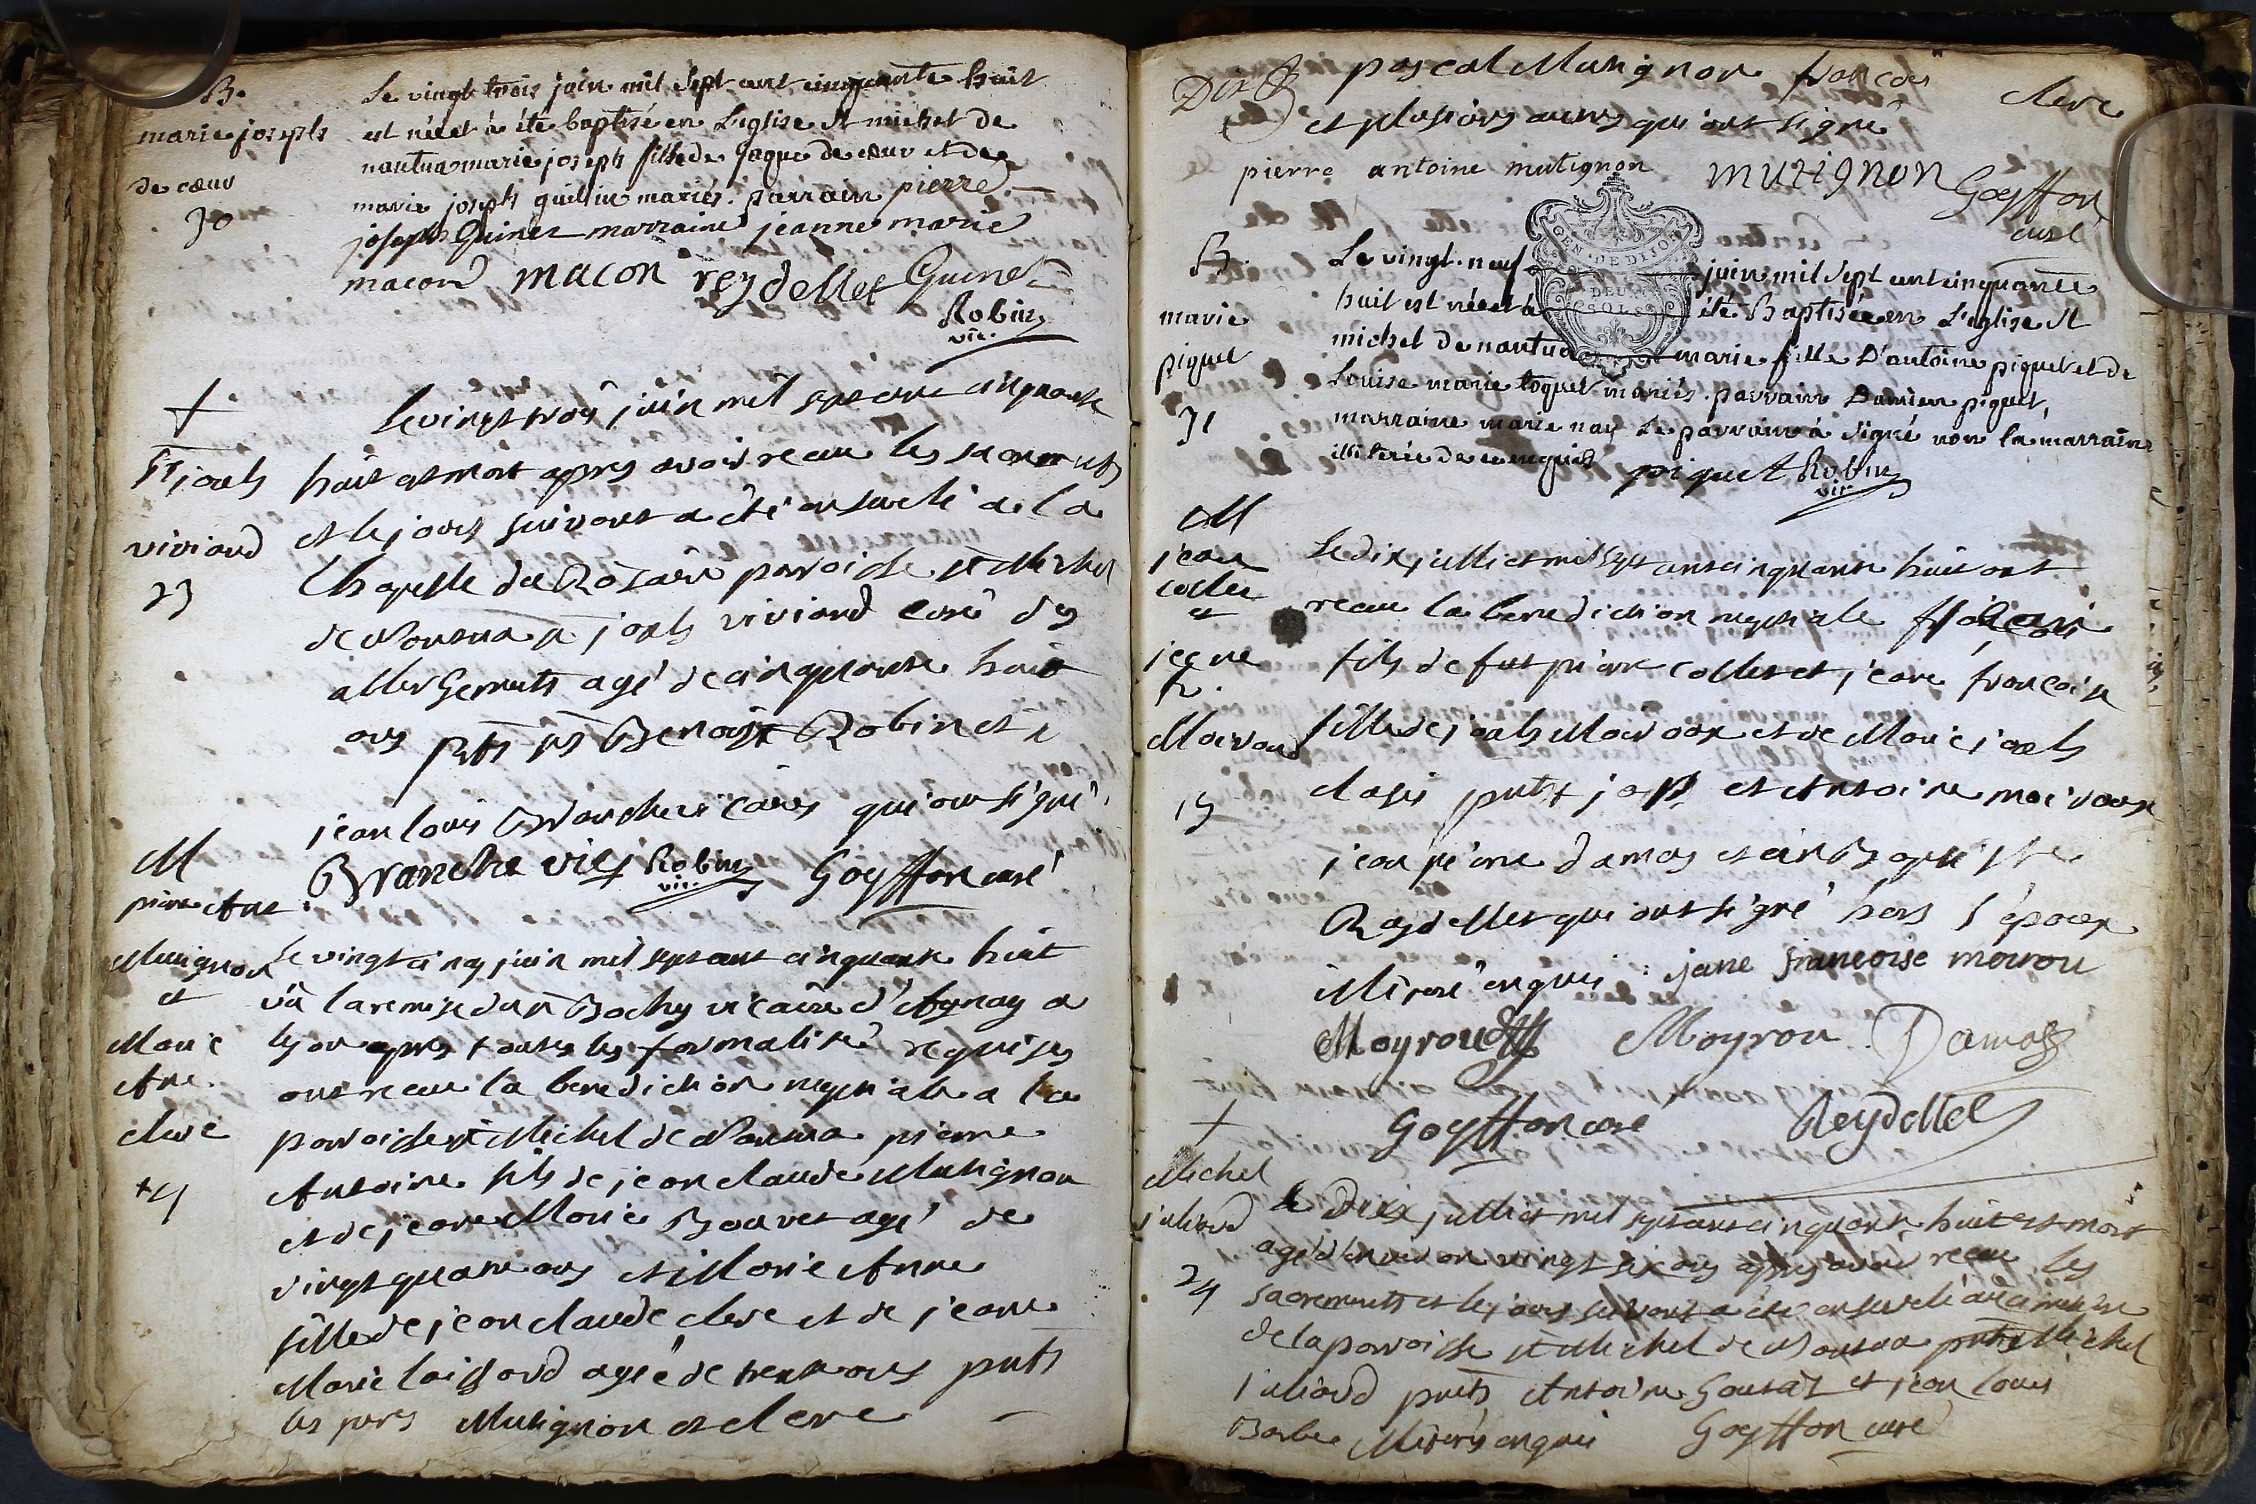 B.
marie joseph
de cœur
30
Le vingt trois juin mil sept cent cinquante huit
est née et à été baptisé en L'eglise St michel de
nantua marie joseph fille de jaque de cœur et de
marie joseph guillin mariés. parrain pierre
joseph Guinet marraine jeanne marie
macon macon reydellet Guinet
Robin
vic.
+
Sr joseph
viviand
23
le vingt trois juin mil sept cent cinquante
huit est mort apres avoir recu les sacrements
et le jours suivant a été ensveli a la
Chapelle du Rosaire paroisse st Michel
de Nantua sr joseph viviand curé des
allergements agé de cinquante huit
ans pnts srs Benoist Robin et
jean louis Branche vicaires qui ont signé
Branche vic Robin vic. Goyffon curé
M
pierre Ant
Mutignon
et
Marie
Ane
clerc
14
Le vingt cinq juin mil sept cent cinquante huit
vû la remise du sr Bochy vicaire d'Aynay a
lyon apres toutes les formalités requises
ont recu la benediction nuptiale a la
paroisse st Michel de Nantua pierre
Antoine fils de jean claude Mutignon
et de jeane Marie Bouvet agé de
vingt quatre ans et Marie Anne
fille de jean claude clerc et de jeane
Marie laissard agée de trente ans pnts
les peres Mutignon et clerc
Dix 8
pascal Mutignon francois clerc
et plusieurs autres qui ont signé
pierre antoine mutignon mutignon Goyffon
curé
GEN. DE DIJON
DEUX
SOLS
B.
marie
piquet
31
Le vingt neuf juin mil sept cent cinquante
huit est née et à été Baptisée en L'eglise St
michel de nantua marie fille D'antoine piquet et de
Louise marie toquet mariés. parrain Damien piquet,
marraine marie nay le parrain à signé non la marraine
illiterée de ce enquis piquet Robin
vic
M
jean
collet
et
jeane
fr.
Moirou
15
Le dix juillet mil sept cent cinquante huit ont
recu la benediction nuptiale
fils de fut pierre collet et jeane francoise
fille de joseph Moiroux et de Marie joseph
pnts joseph et Antoine moiroux
jean pierre damas et Baptiste
Reydellet qui ont signé hors l'époux
illiteré enquis : jane francoise mouron
Moyroud Moyrou Damas
Goyffon curé Reydellet
+
Michel
juliard
24
le Dix juillet mil sept cent cinquante huit est mort
agé d'environ vingt six ans apres avoir recu les
sacrements et le jours suivant a été ensveli au cimetiere
de la paroisse st Michel de Nantua Michel
juliard pnts Antoine et jean louis
Barbe illiterés enquis Goyffon curé